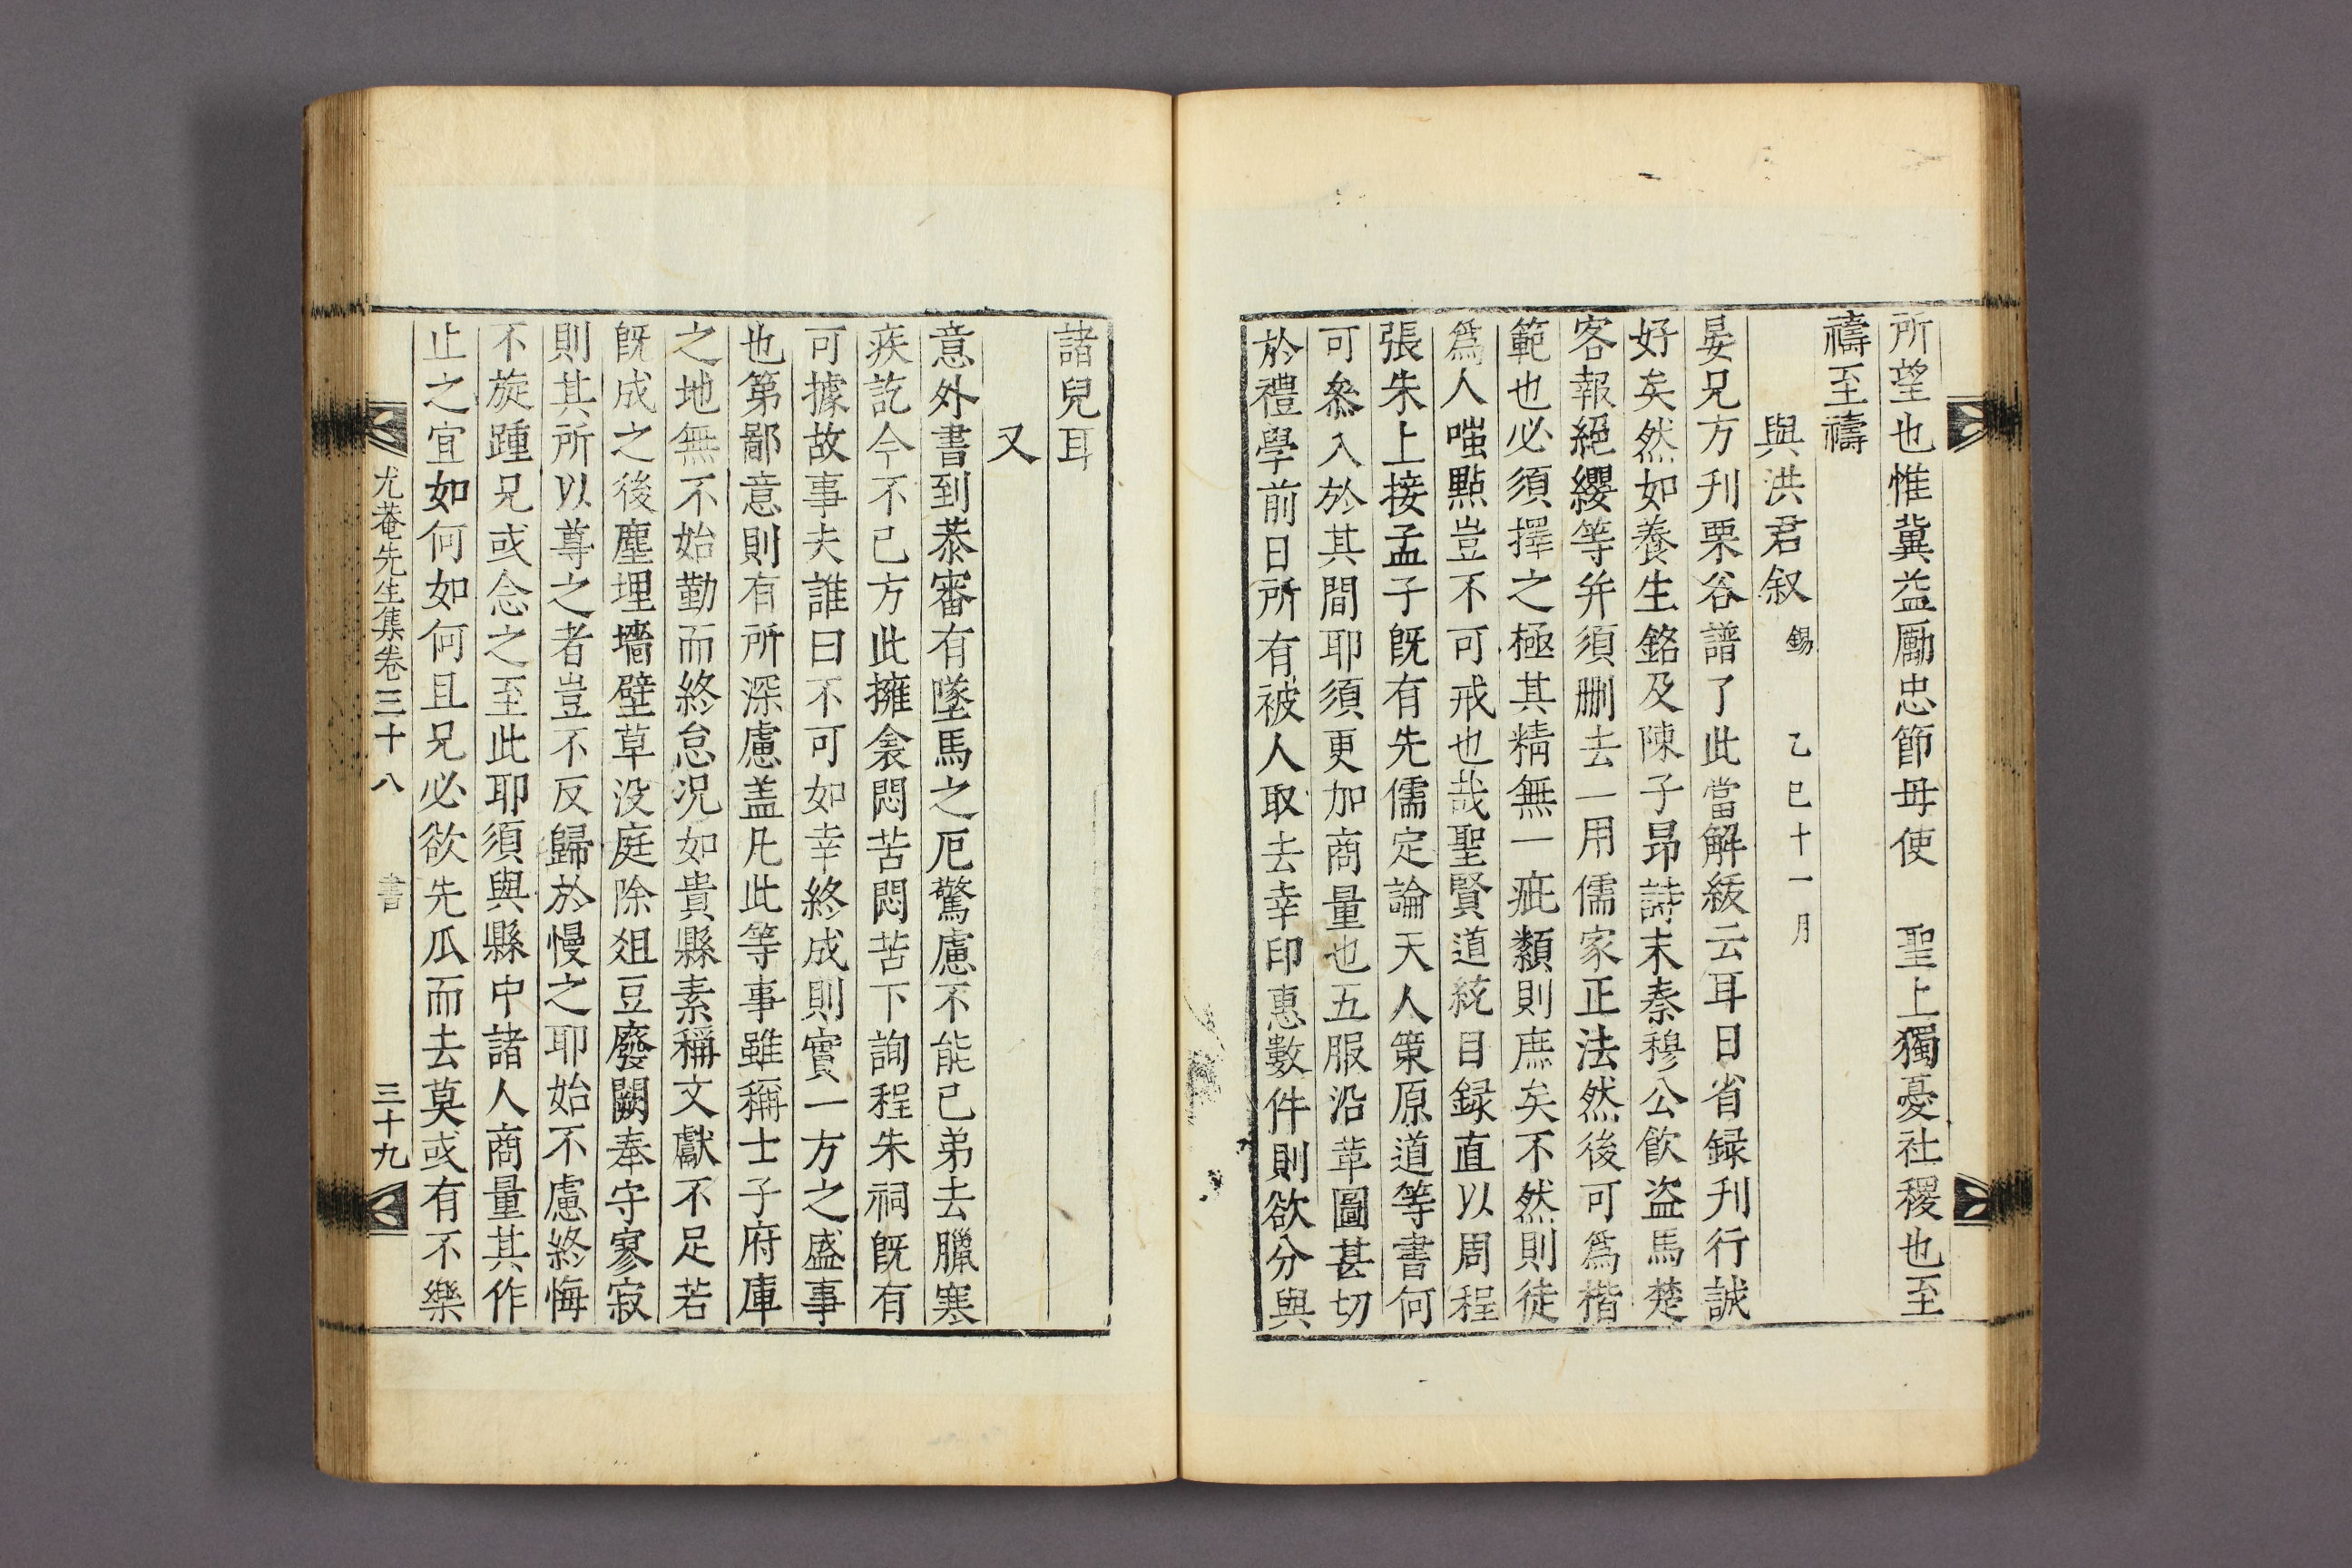 所望也惟冀益勵忠節毋使 聖上獨憂社稷也至
禱至禱
與洪君叙 錫 乙巳十一月
晏兄方刊栗谷譜了此當解紱云耳日省録刊行誠
好矣然如養生銘及陳子昂詩末秦穆公飮盜馬楚
客報絕纓等幷須删去一用儒家正法然後可爲楷
範也必須擇之極其精無一疵纇則庶矣不然則徒
爲人嗤點豈不可戒也哉聖賢道統目録直以周程
張朱上接孟子旣有先儒定論天人策原道等書何
可參入於其間耶須更加商量也五服沿革圖甚切
於禮學前日所有被人取去幸印惠數件則欲分與
諸兒耳
又
意外書到恭審有墜馬之厄驚慮不能已弟去臘寒
疾訖今不已方此擁衾悶苦悶苦下詢程朱祠旣有
可據故事夫誰曰不可如幸終成則實一方之盛事
也第鄙意則有所深慮盖凡此等事雖稱士子府庫
之地無不始勤而終怠况如貴縣素稱文獻不足若
旣成之後塵埋墻壁草没庭除俎豆廢闕奉守寥寂
則其所以尊之者豈不反歸於慢之耶始不慮終悔
不旋踵兄或念之至此耶須與縣中諸人商量其作
止之宜如何如何且兄必欲先瓜而去莫或有不樂
尤菴先生集卷三十八 書 三十九